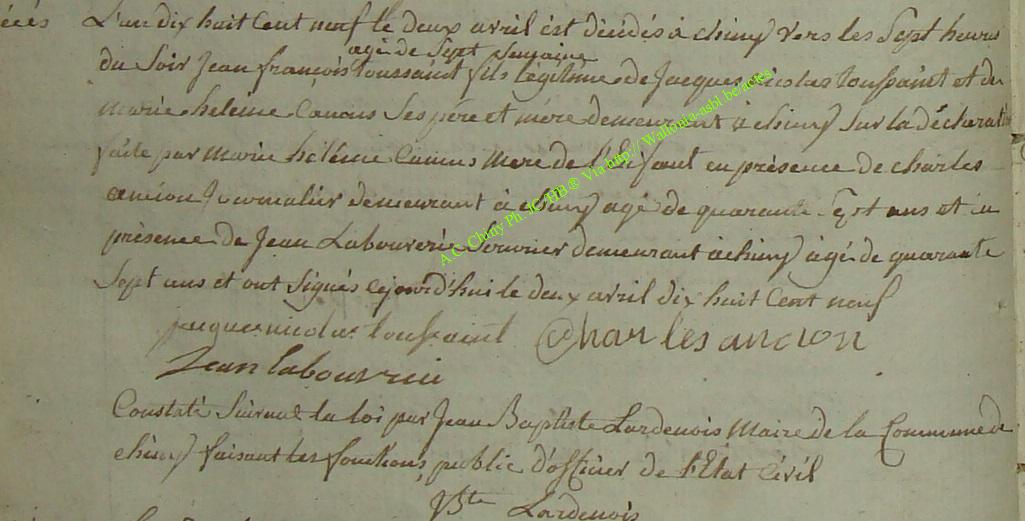 L'an dix huit cent neuf le deux avril est décédés à chiny vers les sept heures
agé de sept semaine
du soir Jean françois toussaint fils légitime de Jacques nicolas toussaint et de
marie heleine Camus ses pére et mére demeurant à chiny sur la déclarat
faite par marie hélène Camus mere de l'Enfant en présence de charles
ancion Journalier demeurant à chiny agé de quarante sept ans et en
présence de Jean Labouverie demeurant à chiny agé de quarante
sept ans et ont signés cejourd'hui le deux avril dix huit cent neuf
jacque nicolas toussaint Charles ancion
Jean labouverie
Constaté suivant la loi par Jean Baptiste Lardenois Maire de la Commune de
chiny faisant les fonctions public d'officier de l'Etat civil
JBte Lardenois
A.C. Chiny Ph. JC HB® Via http:// Wallonia-asbl.be/actes